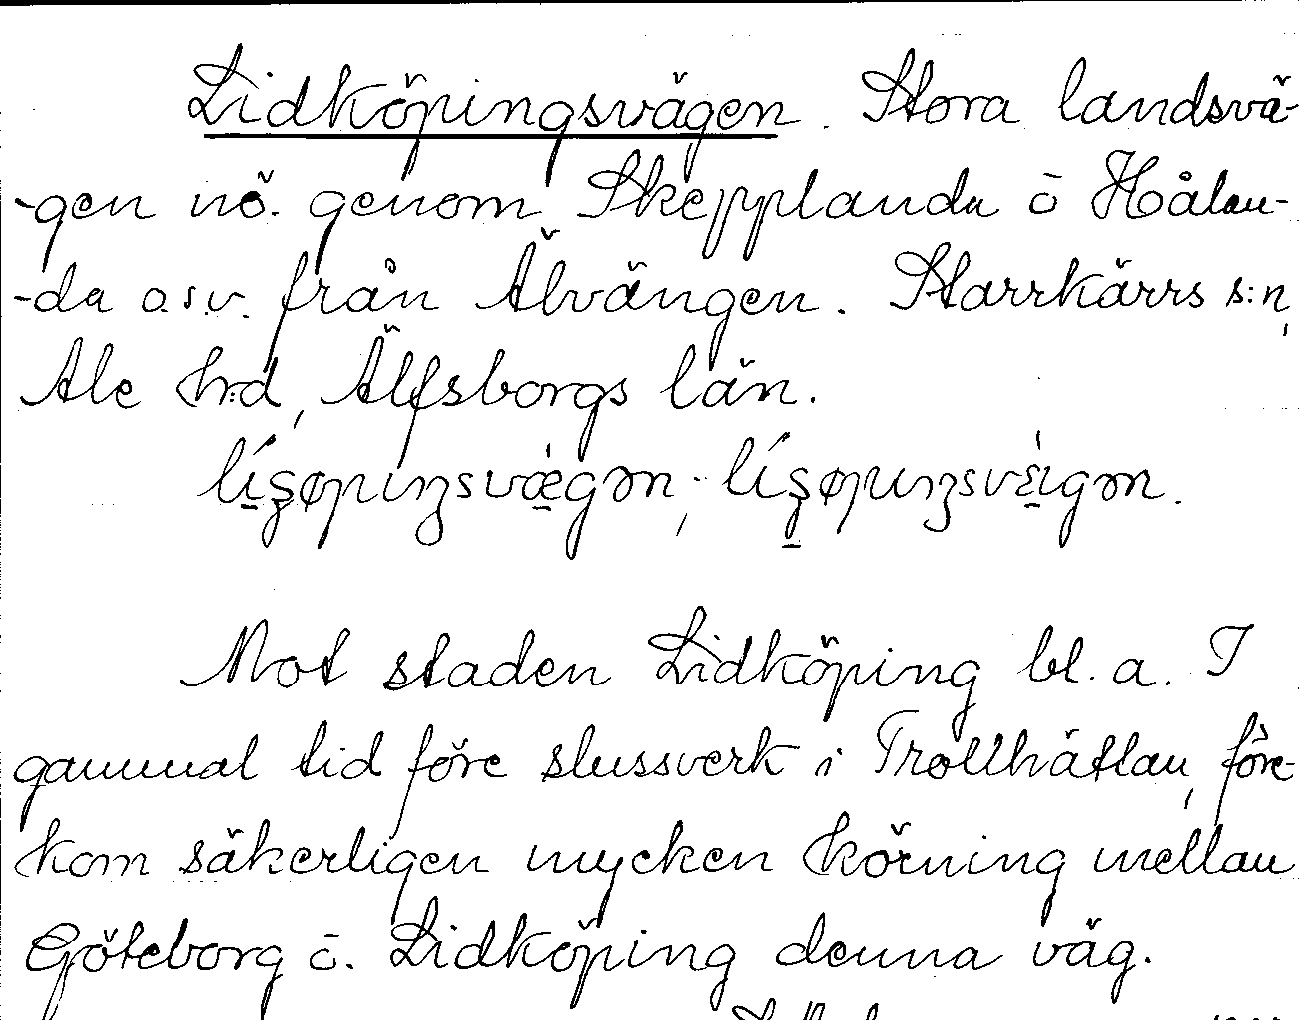 Lidköpingsvägen. Stora landsvä-
-gen nö. genom Skepplanda ō Hålan-
-da o.s.v. från Älvängen. Starrkärrs s:n,
Ale h:d, Älfsborgs län.
Mot staden Lidköping bl. a. I
gammal tid före slussverk i Trollhättan, före-
kom säkerligen mycken körning mellan
Göteborg ō. Lidköping denna väg.